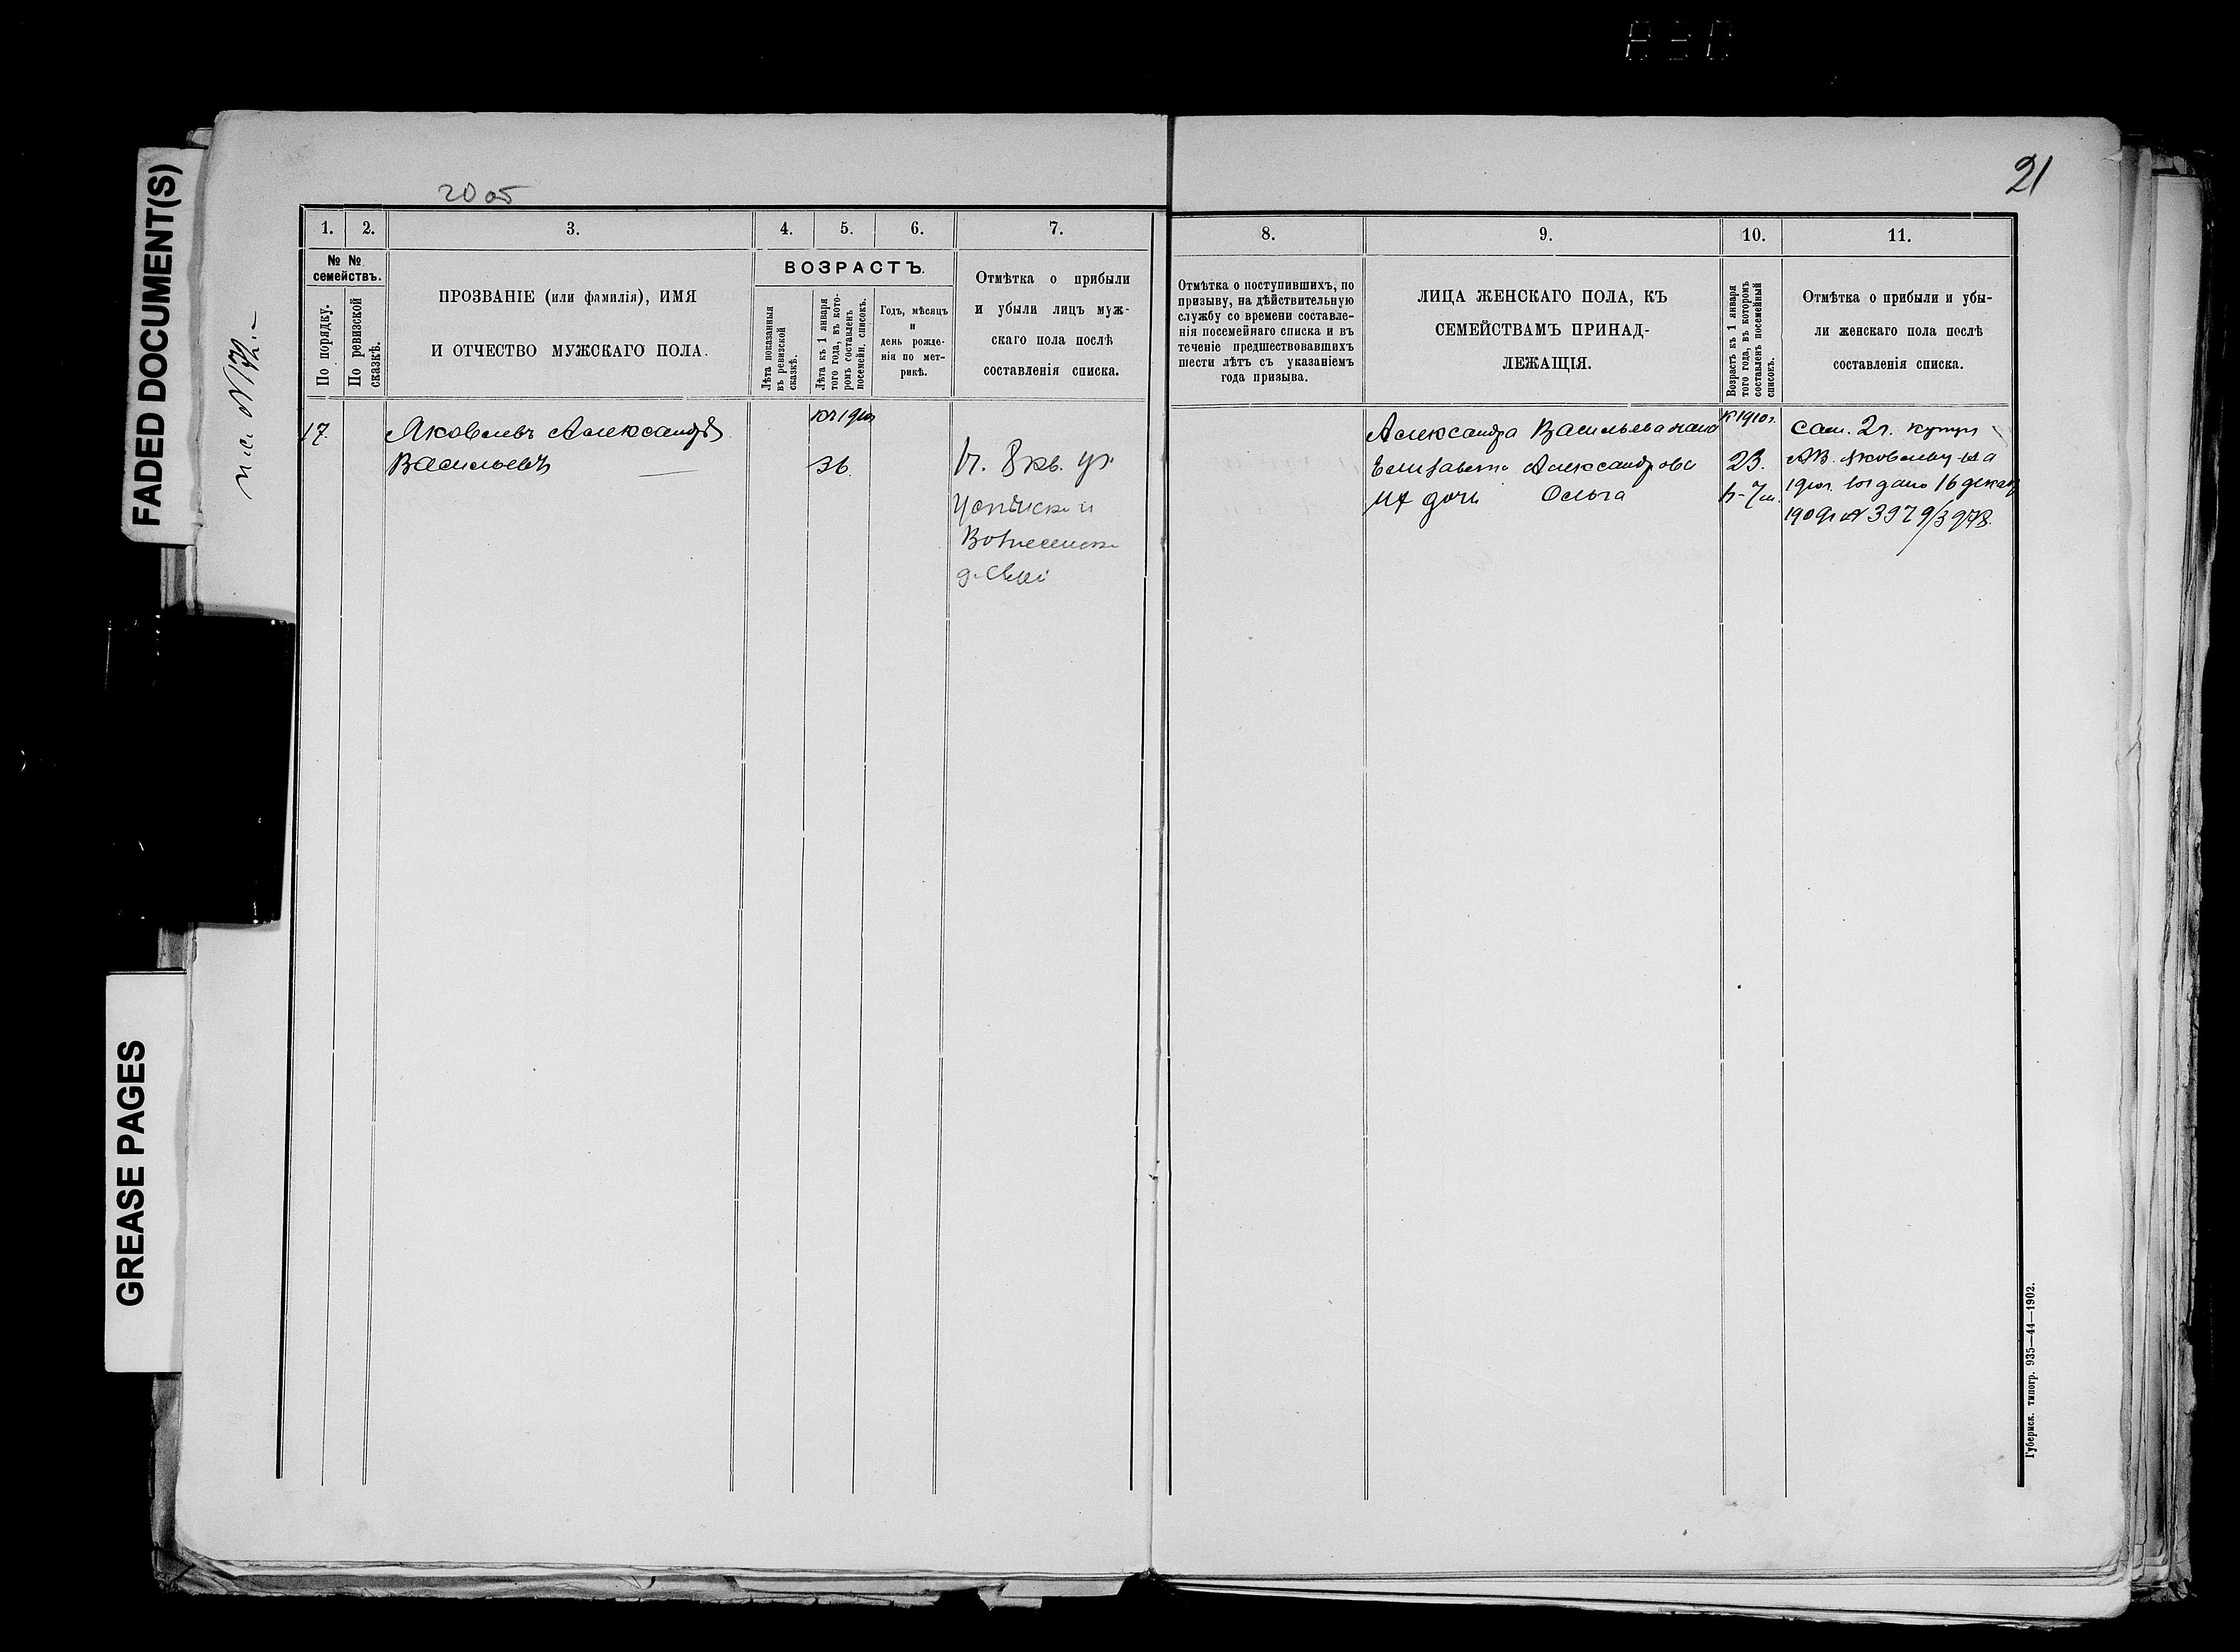 FADED DOCUMENT(S)
GREASE PAGES
20 об
21
1. 2. 3. 4. 5. 6. 7.
№ №
семействъ.
По порядку.
По ревизской
сказкѣ.
ПРОЗВАНІЕ (или фамилія), ИМЯ
И ОТЧЕСТВО МУЖСКАГО ПОЛА.
ВОЗРАСТЪ.
Лѣта показанныя
въ ревизской
сказкѣ.
Лѣта къ 1 января
того года, въ кото-
ромъ составленъ
посемейн. списокъ.
Годъ, мѣсяцъ
и
день рожде-
нія по мет-
рикѣ.
Отмѣтка о прибыли
и убыли лицъ муж-
скаго пола послѣ
составленія списка.
17.
Яковлевъ Александръ
Васильевъ
къ 1910
36.
8 кв. ул.
Успенск. и
Вознесенск.
8. 9. 10. 11.
Отмѣтка о поступившихъ, по
призыву, на дѣйствительную
службу со времени составле-
нія посемейнаго списка и въ
теченіе предшествовавшихъ
шести лѣтъ съ указаніемъ
года призыва.
ЛИЦА ЖЕНСКАГО ПОЛА, КЪ
СЕМЕЙСТВАМЪ ПРИНАД-
ЛЕЖАЩІЯ.
Возрастъ къ 1 января
того года, въ которомъ
составленъ посемейный
списокъ.
Отмѣтка о прибыли и убы-
ли женскаго пола послѣ
составленія списка.
Александра Васильева жена
Елизавета Александрова
Их дочь Ольга
к 1910 г.
23.
Сем. 2 г. купц.
А.В. Яковлеву на
1910 г. выдано 16 декаб
1909 г. № 3979/3978.
Губернск. типогр. 935—44—1902.